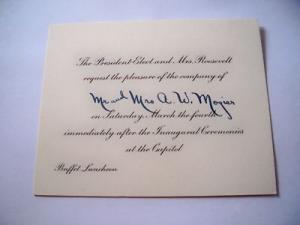 The President-Elect and Mrs. Roosevelt
request the pleasure of the company of
Mr and Mrs A. W. Mozier
on Saturday, March the fourth
immediately after the Inaugural Ceremonies
at the Capitol
Buffet Luncheon